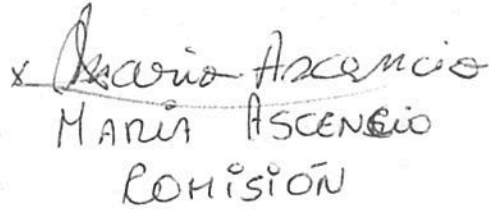 x Maria Ascencio
MARIA ASCENCIO
COMISIÓN